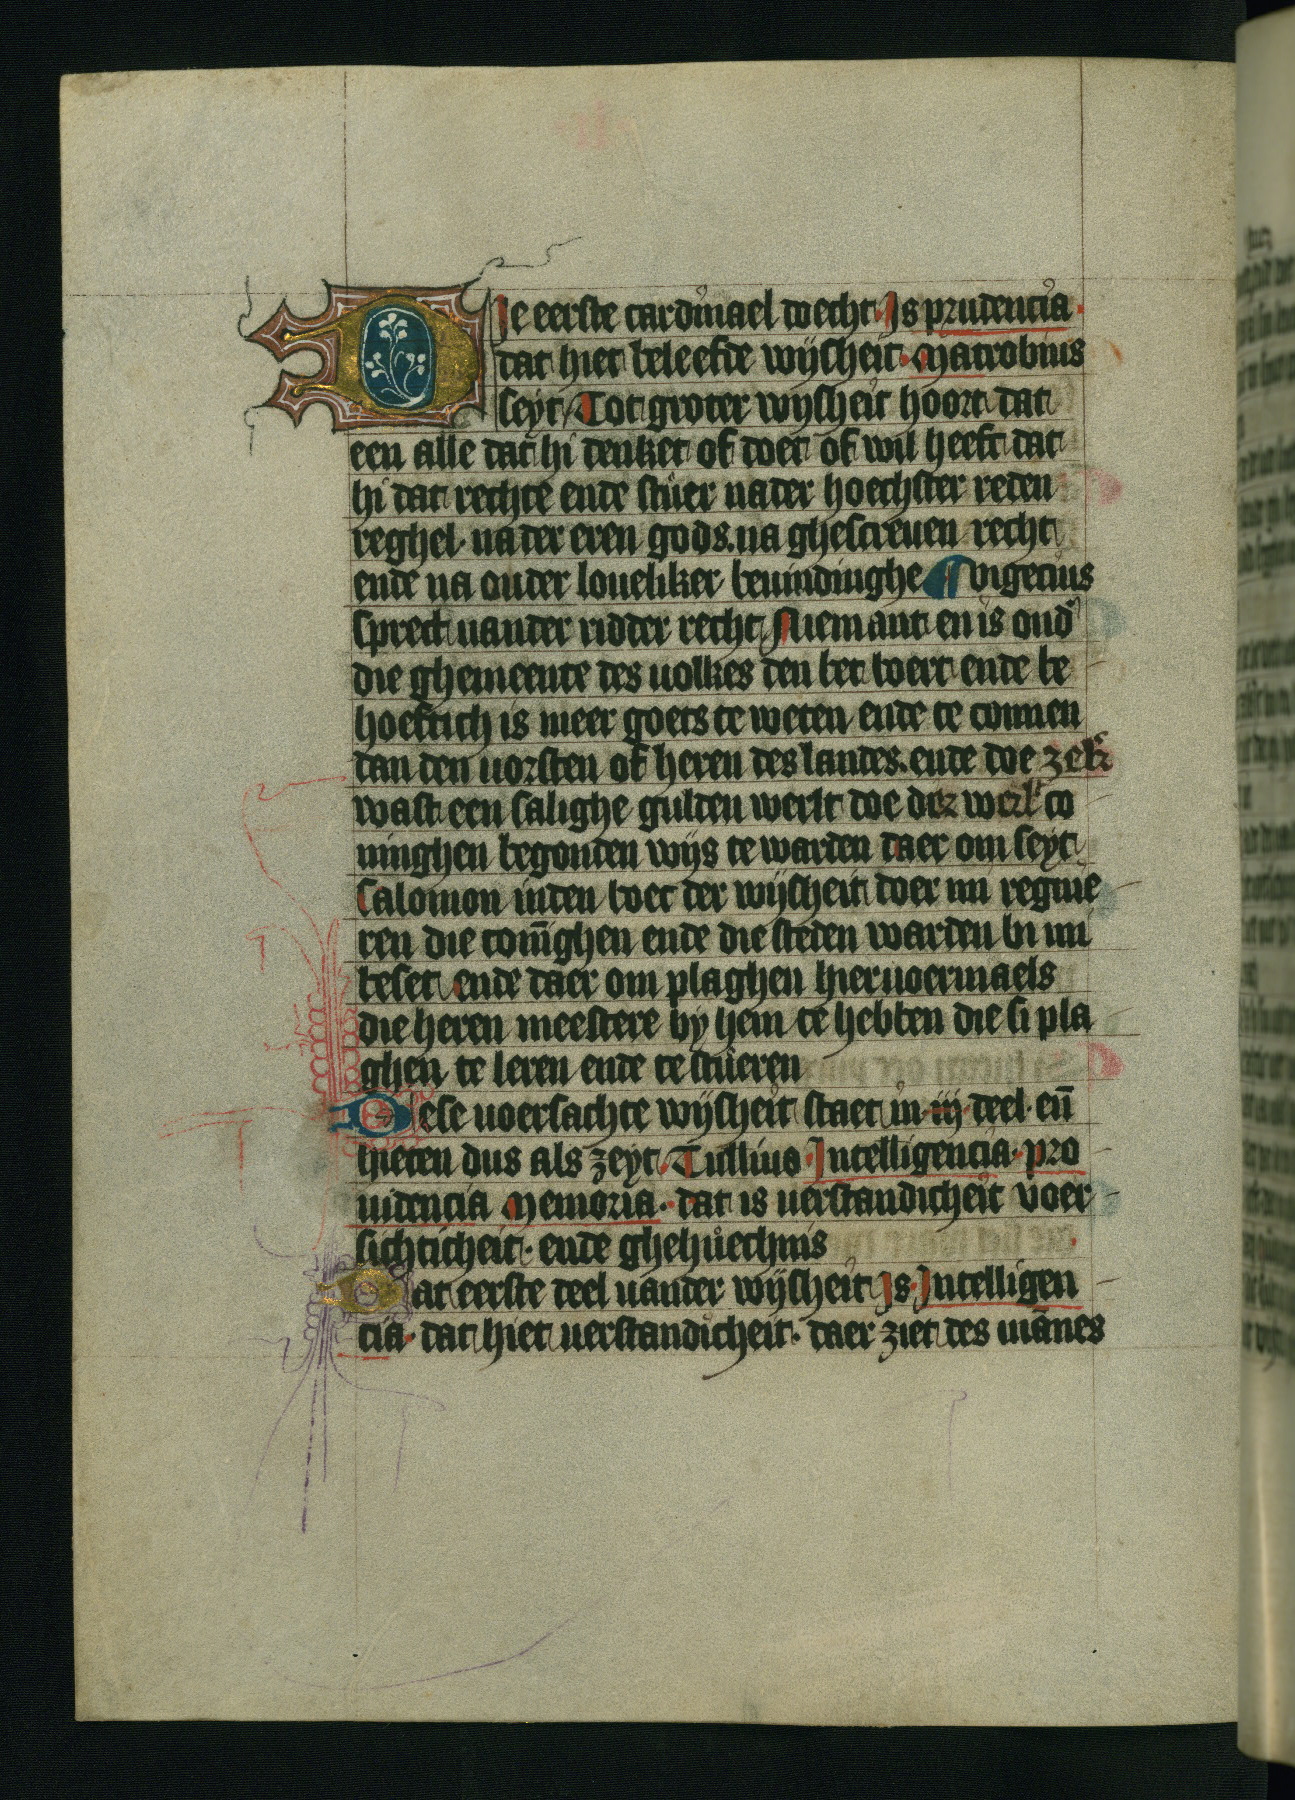 DIe eerste cardinael doecht. Is prudencia.
dat hiet beleefde wijsheit. Macrobius
seyt Tot groter wijsheit hoort dat
een alle dat hi denket of doet of wil heeft dat
hi dat rechte ende stuer nader hoechster reden
reghel. nader eren gods. na ghescreuen recht
ende na ouder loueliker beuindinghe ¶ vigecius
sprect vander ridder recht Niemant en is oud'
die ghemeente des volkes den bet boert ende be
hoeflich is meer goets te weten ende te connen
dan den vorsten of heren des landes. ende doe zek'
wast een salighe gulden werlt doe der werl' co
ninghen begonden wijs te warden daer om seyt
Salomon inden boec der wijsheit doer mi regnie
ren die coninghen ende die steden warden bi mi
beset ende daer om plaghen hier voermaels
die heren meestere by hem te hebben die si pla
ghen te leren ende te stueren
Dese voersachte wijsheit staet in iij deel. en̄
hieten dus als zeyt. Tullius Intelligencia. pro
uidencia Memoria. dat is verstandicheit voer
sichticheit. ende ghehuechnis
Dat eerste deel vander wijsheit Is Intelligen
cia. dat hiet verstandicheit. daer ziet des mānes